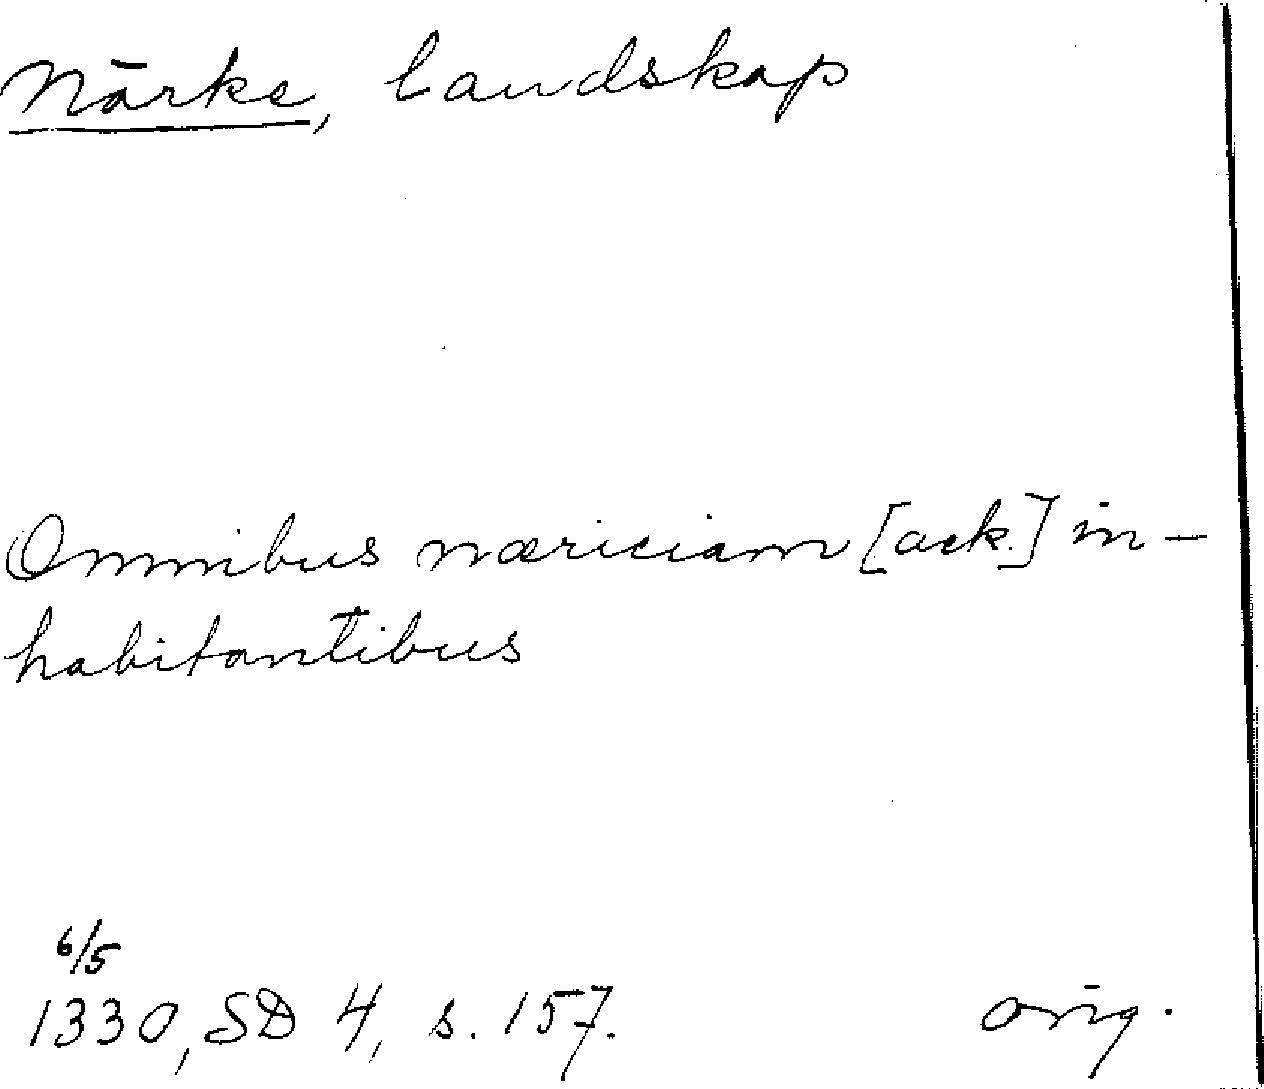 Närke, landskap
Omnibus næriciam [ack.] in-
habitantibus
6/5
1330, SD 4, s. 157. orig.